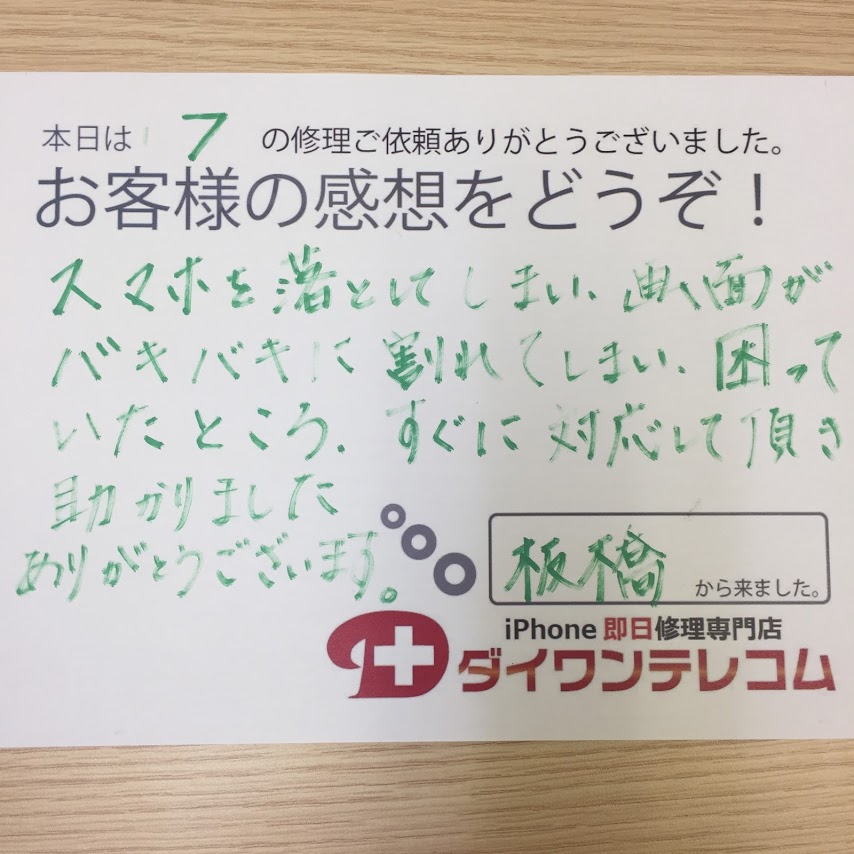 本日は 7 の修理ご依頼ありがとうございました。
お客様の感想をどうぞ！
スマホを落としてしまい、画面が
バキバキに割れてしまい、困って
いたところ、すぐに対応して頂き
助かりました
ありがとうございます。
板橋 から来ました。
iPhone 即日修理専門店
ダイワンテレコム